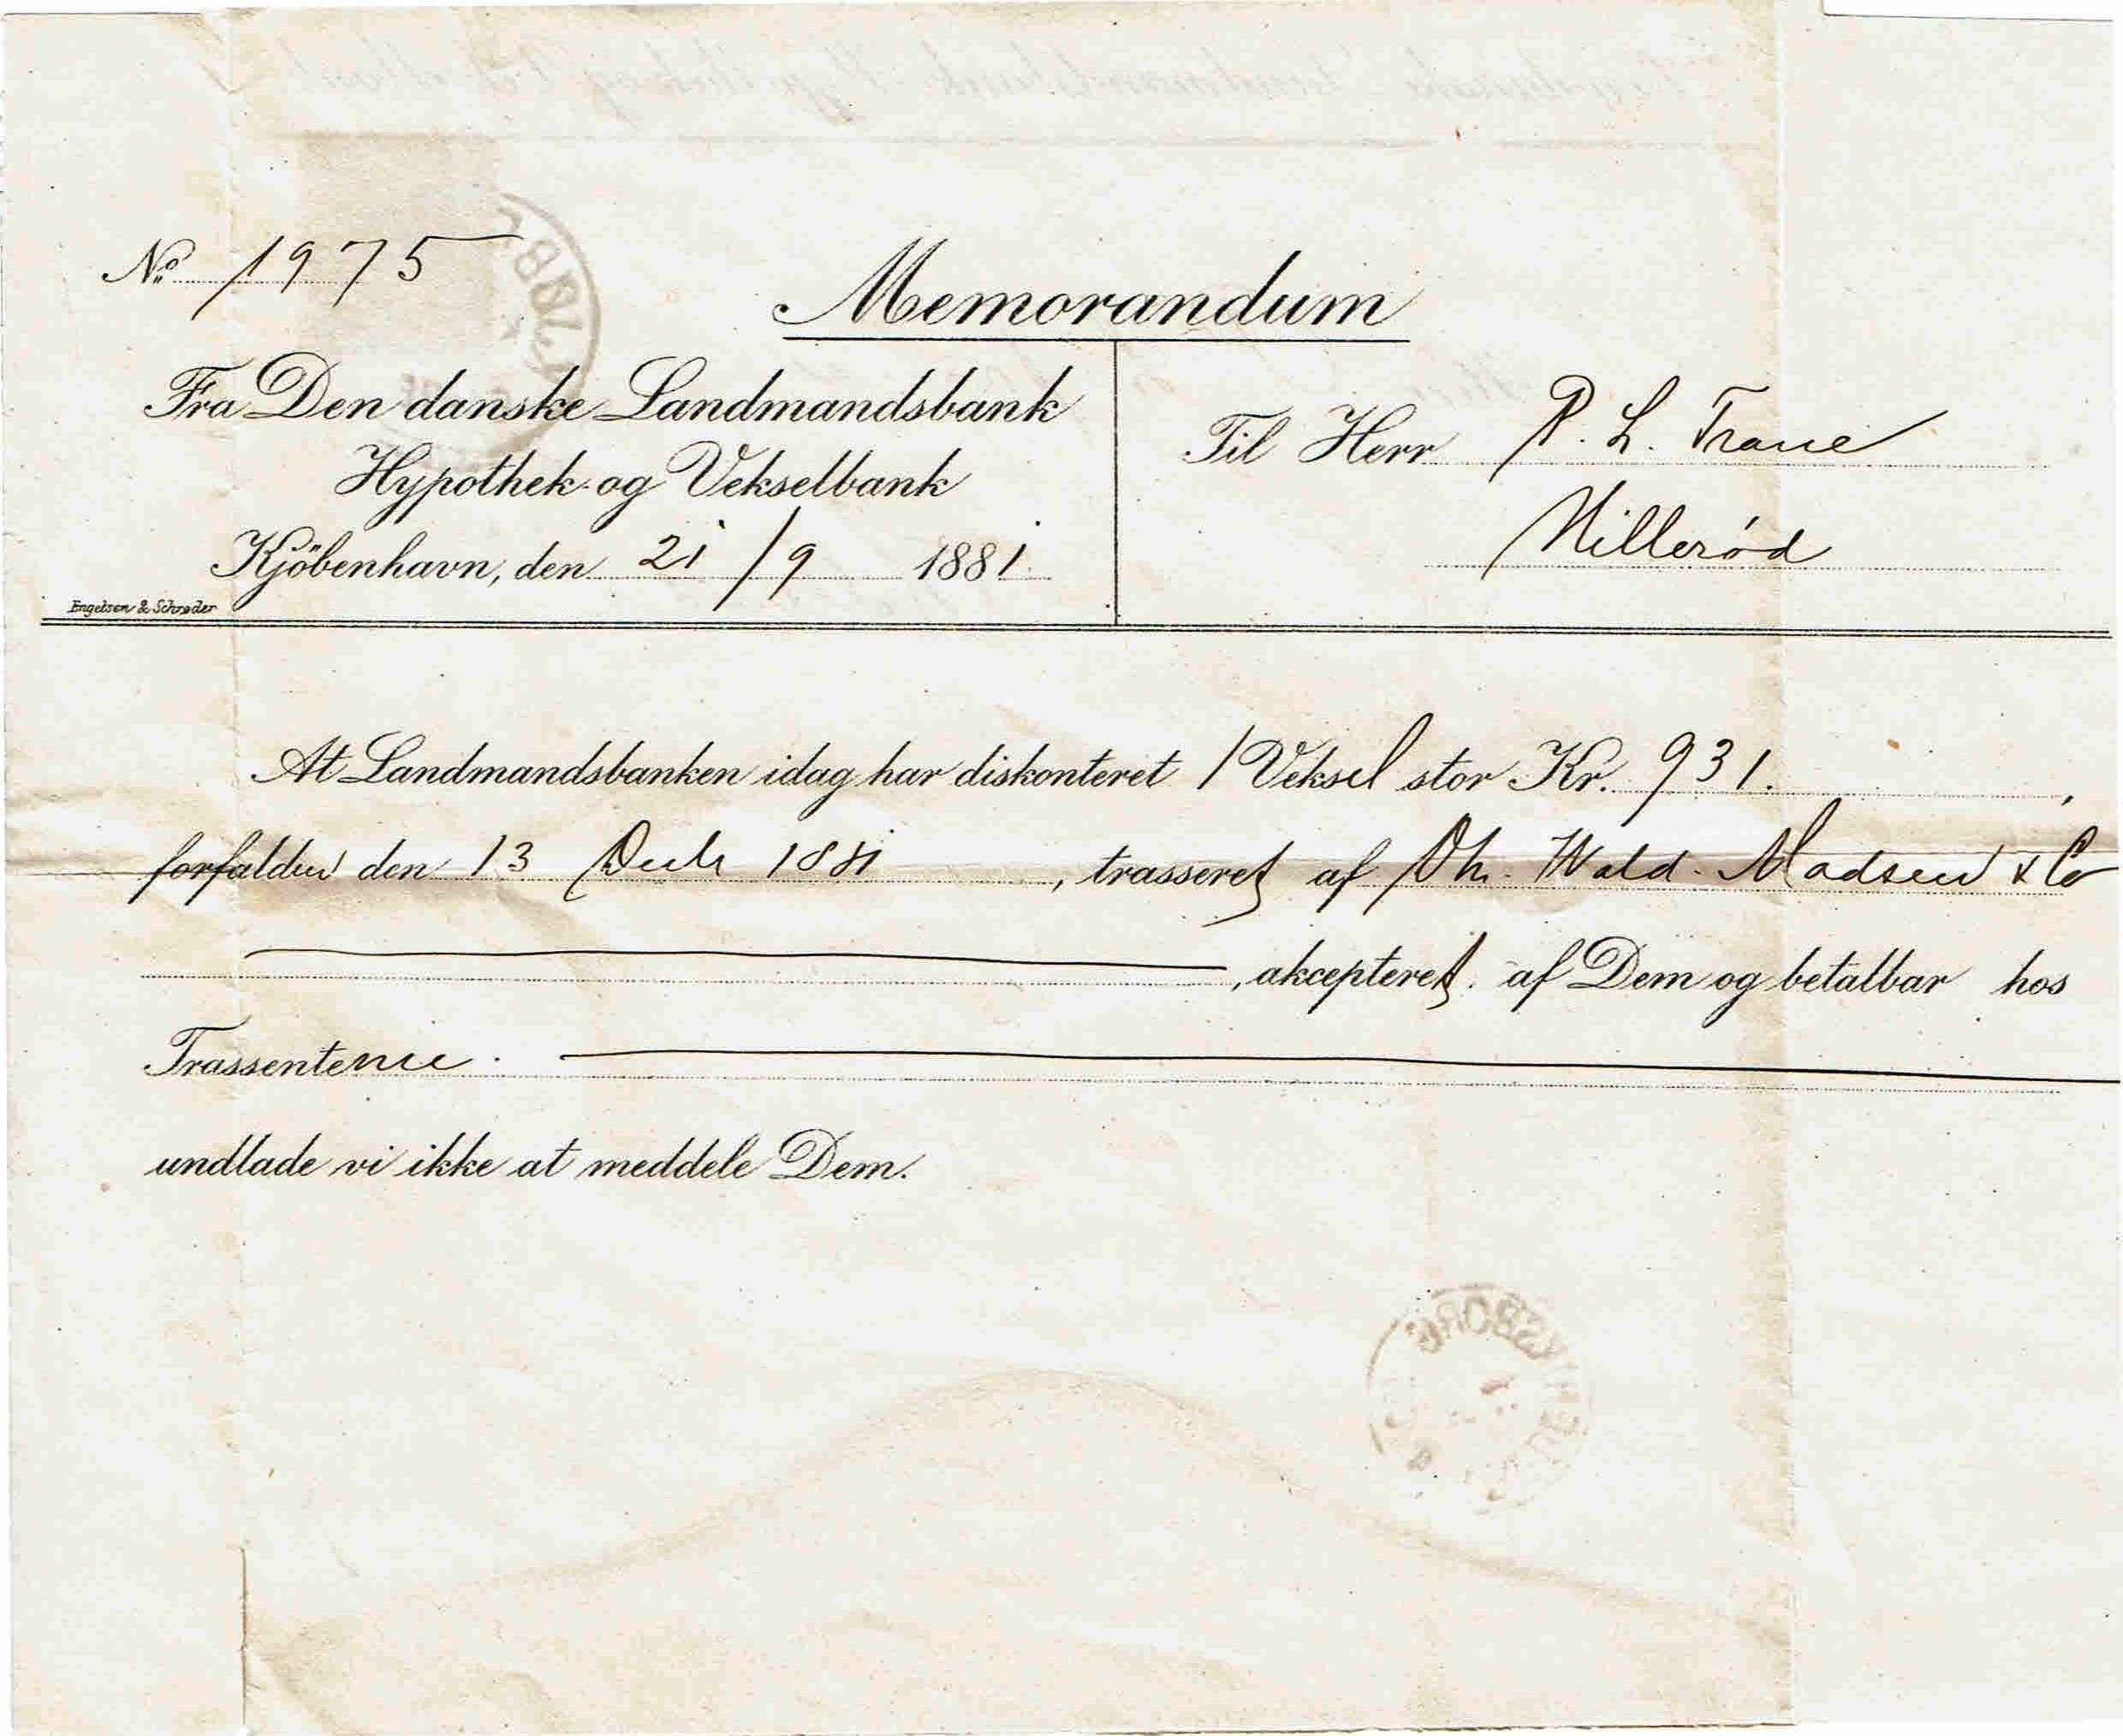 No. 1975
Memorandum
Fra Den danske Landmandsbank
Hypothek- og Vekselbank
Kjöbenhavn, den 21/9 1881.
Engelsen & Schrøder
Til Herr P. L. Trane
Hillerød
At Landmandsbanken idag har diskonteret 1 Veksel stor Kr. 931. ,
forfalden den 13 Decbr 1881 , trasseret af Wald. Madsen & Co
, akcepteret af Dem og betalbar hos
Trassenterne.
undlade vi ikke at meddele Dem.